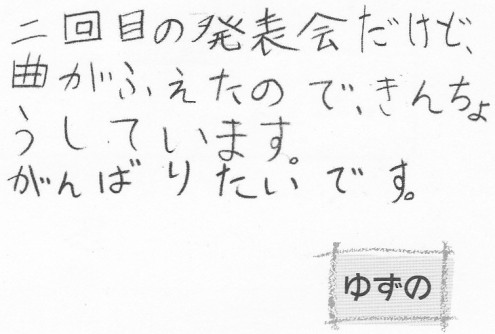 二回目の発表会だけど、
曲がふえたので、きんちょ
うしています。
がんばりたいです。
ゆずの